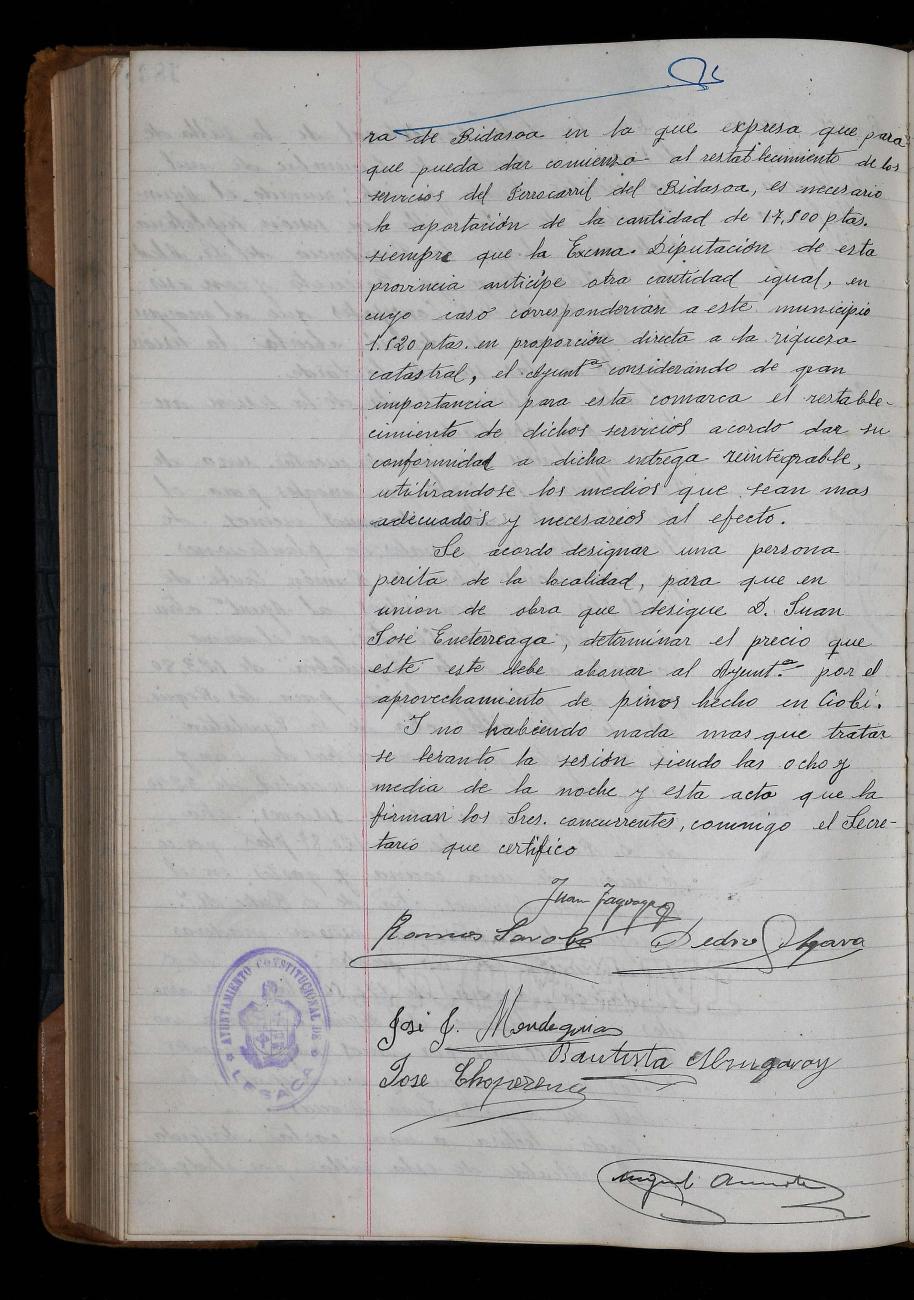 ra de Bidasoa en la que expresa que para
que pueda dar comienzo al restablecimiento de los
servicios del Ferrocarril del Bidasoa, es necesario
la aportación de la cantidad de 17,500 ptas.
siempre que la Excma. Diputación de esta
provincia anticipe otra cantidad igual, en
cuyo caso corresponderian a este municipio
1.520 ptas. en proporción directa a la riqueza
catastral, el Ayuntº considerando de gran
importancia para esta comarca el restable-
cimiento de dichos servicios acordo dar su
conformidad a dicha entrega reintegrable,
utilizandose los medios que sean mas
adecuados y necesarios al efecto.
Se acordo designar una persona
perita de la localidad, para que en
union de obra que desigue D. Juan
José Eneterreaga, determinar el precio que
este este debe abonar al Ayuntº por el
aprovechamiento de pinos hecho en
Y no habiendo nada mas que tratar
se levanto la sesión siendo las ocho y
media de la noche y esta acta que la
firman los Sres. concurrentes, conmigo el Secre-
tario que certifico
Juan
Ramos Pedro
José J. Mendeguia
Bautista
Jose
Miguel
AYUNTAMIENTO CONSTITUCIONAL DE
LESACA